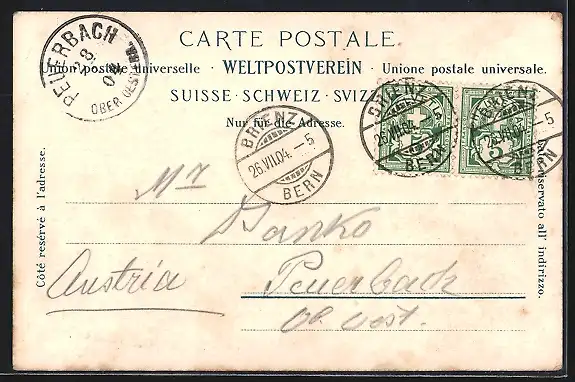 CARTE POSTALE.
Union postale universelle · WELTPOSTVEREIN · Unione postale universale.
SUISSE · SCHWEIZ · SVIZ
Nur für die Adresse.
PEUERBACH
28
04
OBER OEST
BRIENZ
26.VII.04. – 5
BERN
BRIENZ
26.VII.04.
BERN
BRIENZ
26.VII.04. – 5
BERN
Côté reservé à l'adresse.
riservato all' indirizzo.
Mr
Danko
Austria
Peuerbach
Ob. oest.